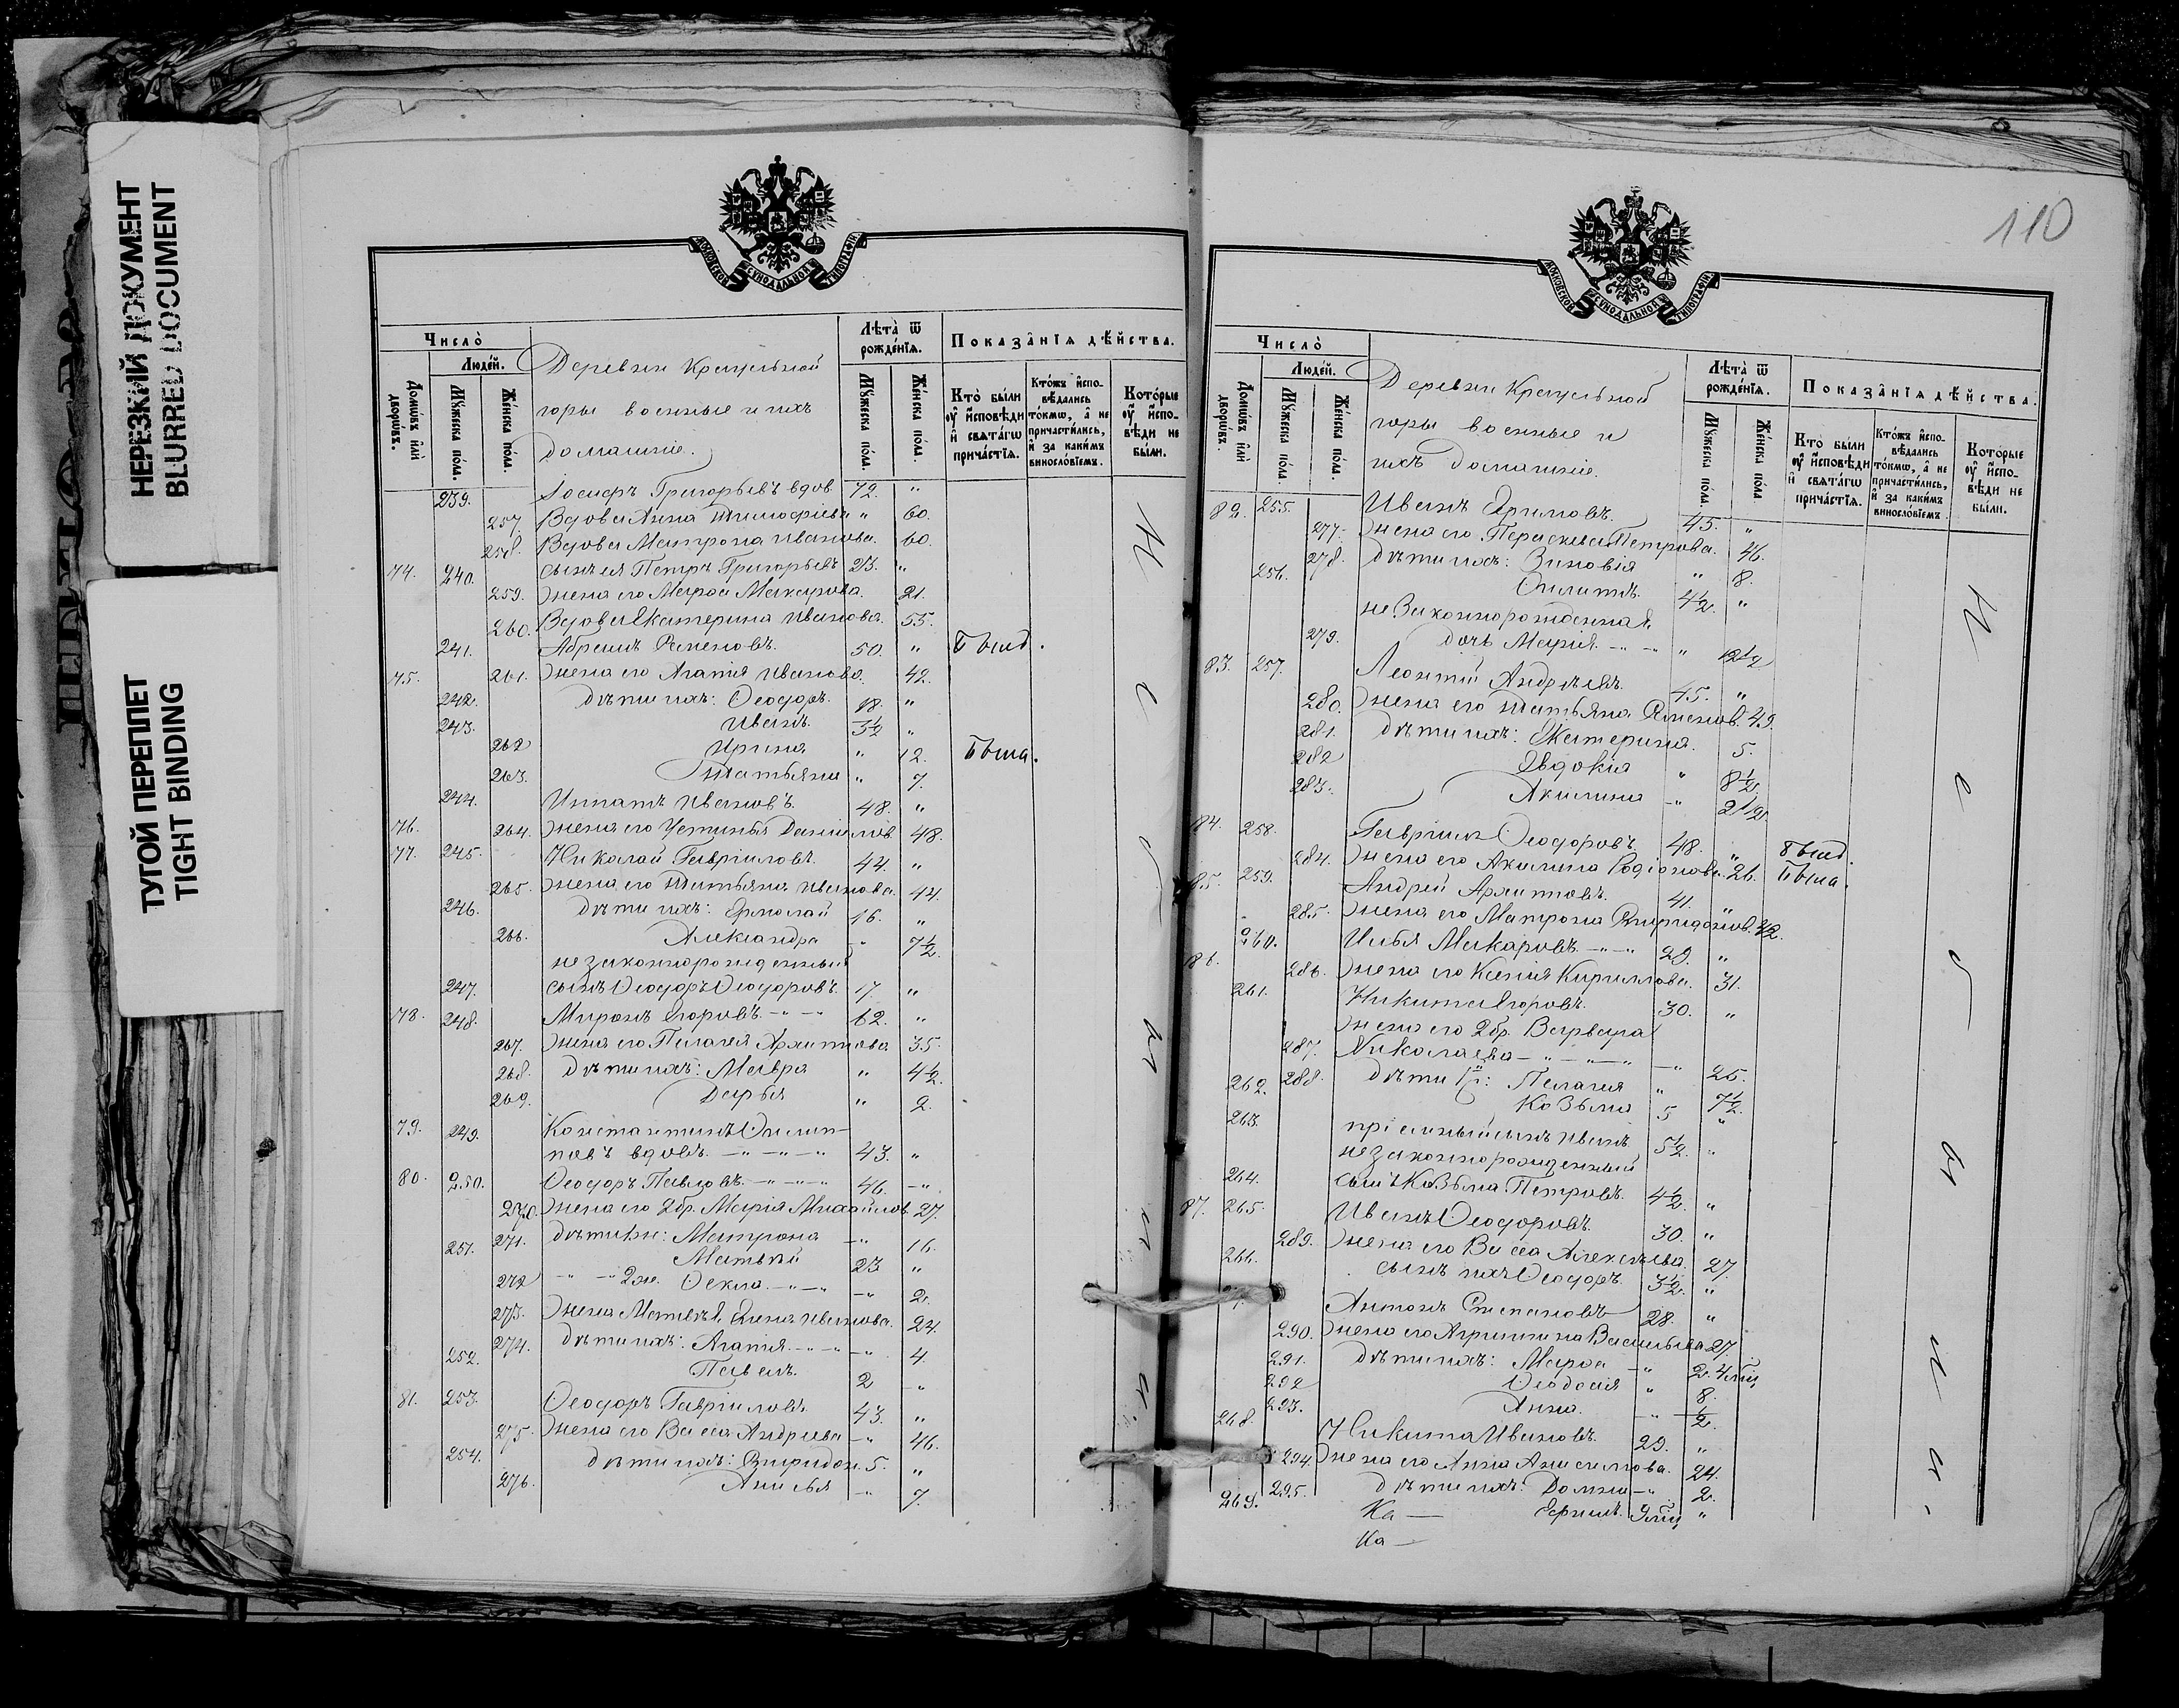 НЕРЕЗКИЙ ДОКУМЕНТ
BLURRED DOCUMENT
ТУГОЙ ПЕРЕПЛЕТ
TIGHT BINDING
МОСКОВСКОЙ СѴНОДАЛЬНОЙ ТИПОГРАФІИ
Число̀
Люде́й.
Домѡ́въ и҆лѝ дворѡ́въ.
Мꙋ́жеска по́ла.
Же́нска по́ла.
Деревни Крациьной
горы военные и ихъ
домашніе.
Лѣта̀ ѿ рожде́нїѧ.
Мꙋ́жеска по́ла.
Же́нска по́ла.
Показа̑нїѧ дѣ́йства.
Кто̀ бы́ли оу҆ и҆сповѣ́ди и҆ свѧта́гѡ прича́стїѧ.
Кто́жъ и҆сповѣ́дались то́кмѡ, а҆ не причасти́лись, и҆ за каки́мъ винносло́вїемъ.
Кото́рые оу҆ и҆сповѣ́ди не бы́ли.
239. Іосифъ Григорьевъ вдов. 72. "
257. Вдова Анна Тимофіева " 60.
258. Вдова Матрона Иванова. 60.
74. 240. сынъ ея Петръ Григорьевъ 23. "
259. Жена его Марѳа Макарова. 21.
260. Вдова Екатерина Иванова. 55.
241. Абрамъ Семеновъ. 50. " былъ.
75. 261. Жена его Агапія Иванова. 42.
242. Дѣти ихъ: Ѳеодоръ. 18. "
243. Иванъ. 3½ "
262 Ирина " 12. была.
263. Татьяна " 7.
244. Ипатъ Ивановъ. 48. "
76. 264. Жена его Устинья Данилов. 48.
77. 245. Николай Гавріиловъ. 44. "
265. Жена его Татьяна Иванова. 44.
246. Дѣти ихъ: Ермолай 16. "
266. Александра " 7½.
незаконнорожденный
247. сынъ Ѳеодоръ Ѳеодоровъ. 17. "
78. 248. Миронъ Егоровъ. 62. "
267. Жена его Пелагея Архипова 35.
268. Дѣти ихъ: Мавра " 4½.
269. Дарья " 2.
79. 249. Константинъ Филип-
повъ вдовъ. 43. "
80. 250. Ѳеодоръ Павловъ. 46. "
270. Жена его 2бр. Марія Михайлов. 27.
271. Матрона " 16.
251. Матвѣй 23 "
272 2ж. Ѳекла. " 2.
273. Жена Матвѣя Елена Иванова. 24.
274. Дѣти ихъ: Агапія. " 4.
252. Павелъ. 2 "
81. 253. Ѳеодоръ Гавріиловъ. 43. "
275. Жена его Васса Андреева " 46.
254. Дѣти ихъ: Спиридон. 5. "
276. Анисья " 7.
Не были.
110
МОСКОВСКОЙ СѴНОДАЛЬНОЙ ТИПОГРАФІИ
Число̀
Люде́й.
Домѡ́въ и҆лѝ дворѡ́въ.
Мꙋ́жеска по́ла
Же́нска по́ла
горы военные и
ихъ домашніе.
Лѣта̀ ѿ рожде́нїѧ.
Мꙋ́жеска по́ла.
Же́нска по́ла
Показа̑нїѧ дѣ́йства.
Кто̀ бы́ли оу҆ и҆сповѣ́ди и҆ свѧта́гѡ прича́стїѧ.
Кто́жъ и҆сповѣ́дались то́кмѡ, а҆ не причасти́лись, и҆ за каки́мъ винносло́вїемъ
Кото́рые оу҆ и҆сповѣ́ди не бы́ли.
82. 255. Иванъ Ефимовъ. 45. "
277. Жена его Параскева Петрова. 46.
278. Дѣти ихъ: Зиновія " 8.
256. Филипъ. 4½. "
незаконнорожденная
279. дочь Марія. "
83. 257. Леонтій Андреевъ. 45. "
280. Жена его Татьяна Семенов. 49.
281. Дѣти ихъ: Екатерина. 5.
282 Евдокія " 8½
283. Акилина " 2½
84. 258. Гавріилъ Ѳеодоровъ. 48. " былъ.
284. Жена его Акилина Родіонова. 26. была.
85. 259. Андрей Архиповъ. 41. "
285. Жена его Матрона Спиридонов. 42.
86. 260. Илья Макаровъ. 29. "
286. Жена его Ксенія Кириллова. 31.
261. Никита Егоровъ. 30. "
Жена его 2бр. Варвара
287. Николаева " 25.
262. 288. Дѣти: Пелагея " 7½.
Козьма 5 "
263. пріемный сынъ Иванъ 5½. "
незаконнорожденный
264. сынъ Козьма Петровъ. 4½. "
87. 265. Иванъ Ѳеодоровъ. 30. "
289. Жена его Васса Алексѣева. 27.
266. сынъ ихъ Ѳеодоръ. 3½. "
Антонъ Степановъ 28. "
290. Жена его Агрипина Васильева 27.
291. Дѣти ихъ: Марѳа
292 Ѳеодосія " 8.
293. Анна. " ½.
268. Никита Ивановъ. 29. "
294. Жена его Анна Анисимова. 24.
295. Дѣти ихъ: Домна " 2.
269. Ефимъ. "
На —
На —
Не были.